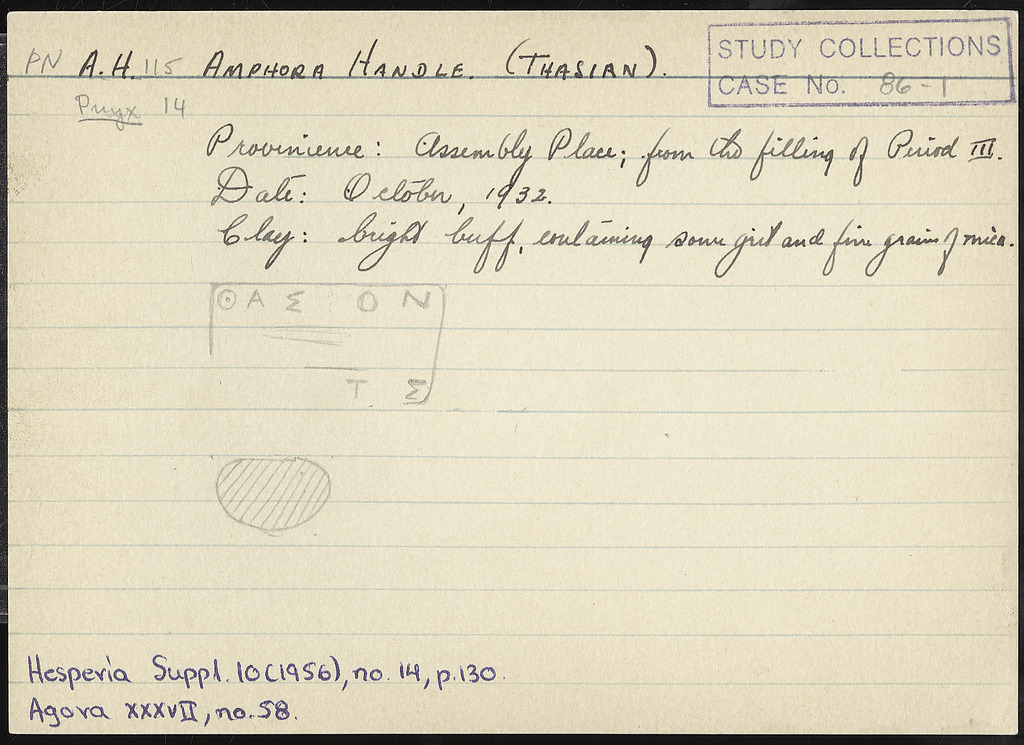 PN A.H. 115 AMPHORA HANDLE. (THASIAN).
STUDY COLLECTIONS
CASE No. 86-1
Pnyx 14
Provinience: Assembly Place; from the filling of Period III.
Date: October, 1932.
Clay: bright buff, containing some grit and fine grains of mica.
ΘΑΣ ΟΝ
Τ Σ
Hesperia Suppl. 10 (1956), no. 14, p. 130.
Agora XXXVII, no. 58.